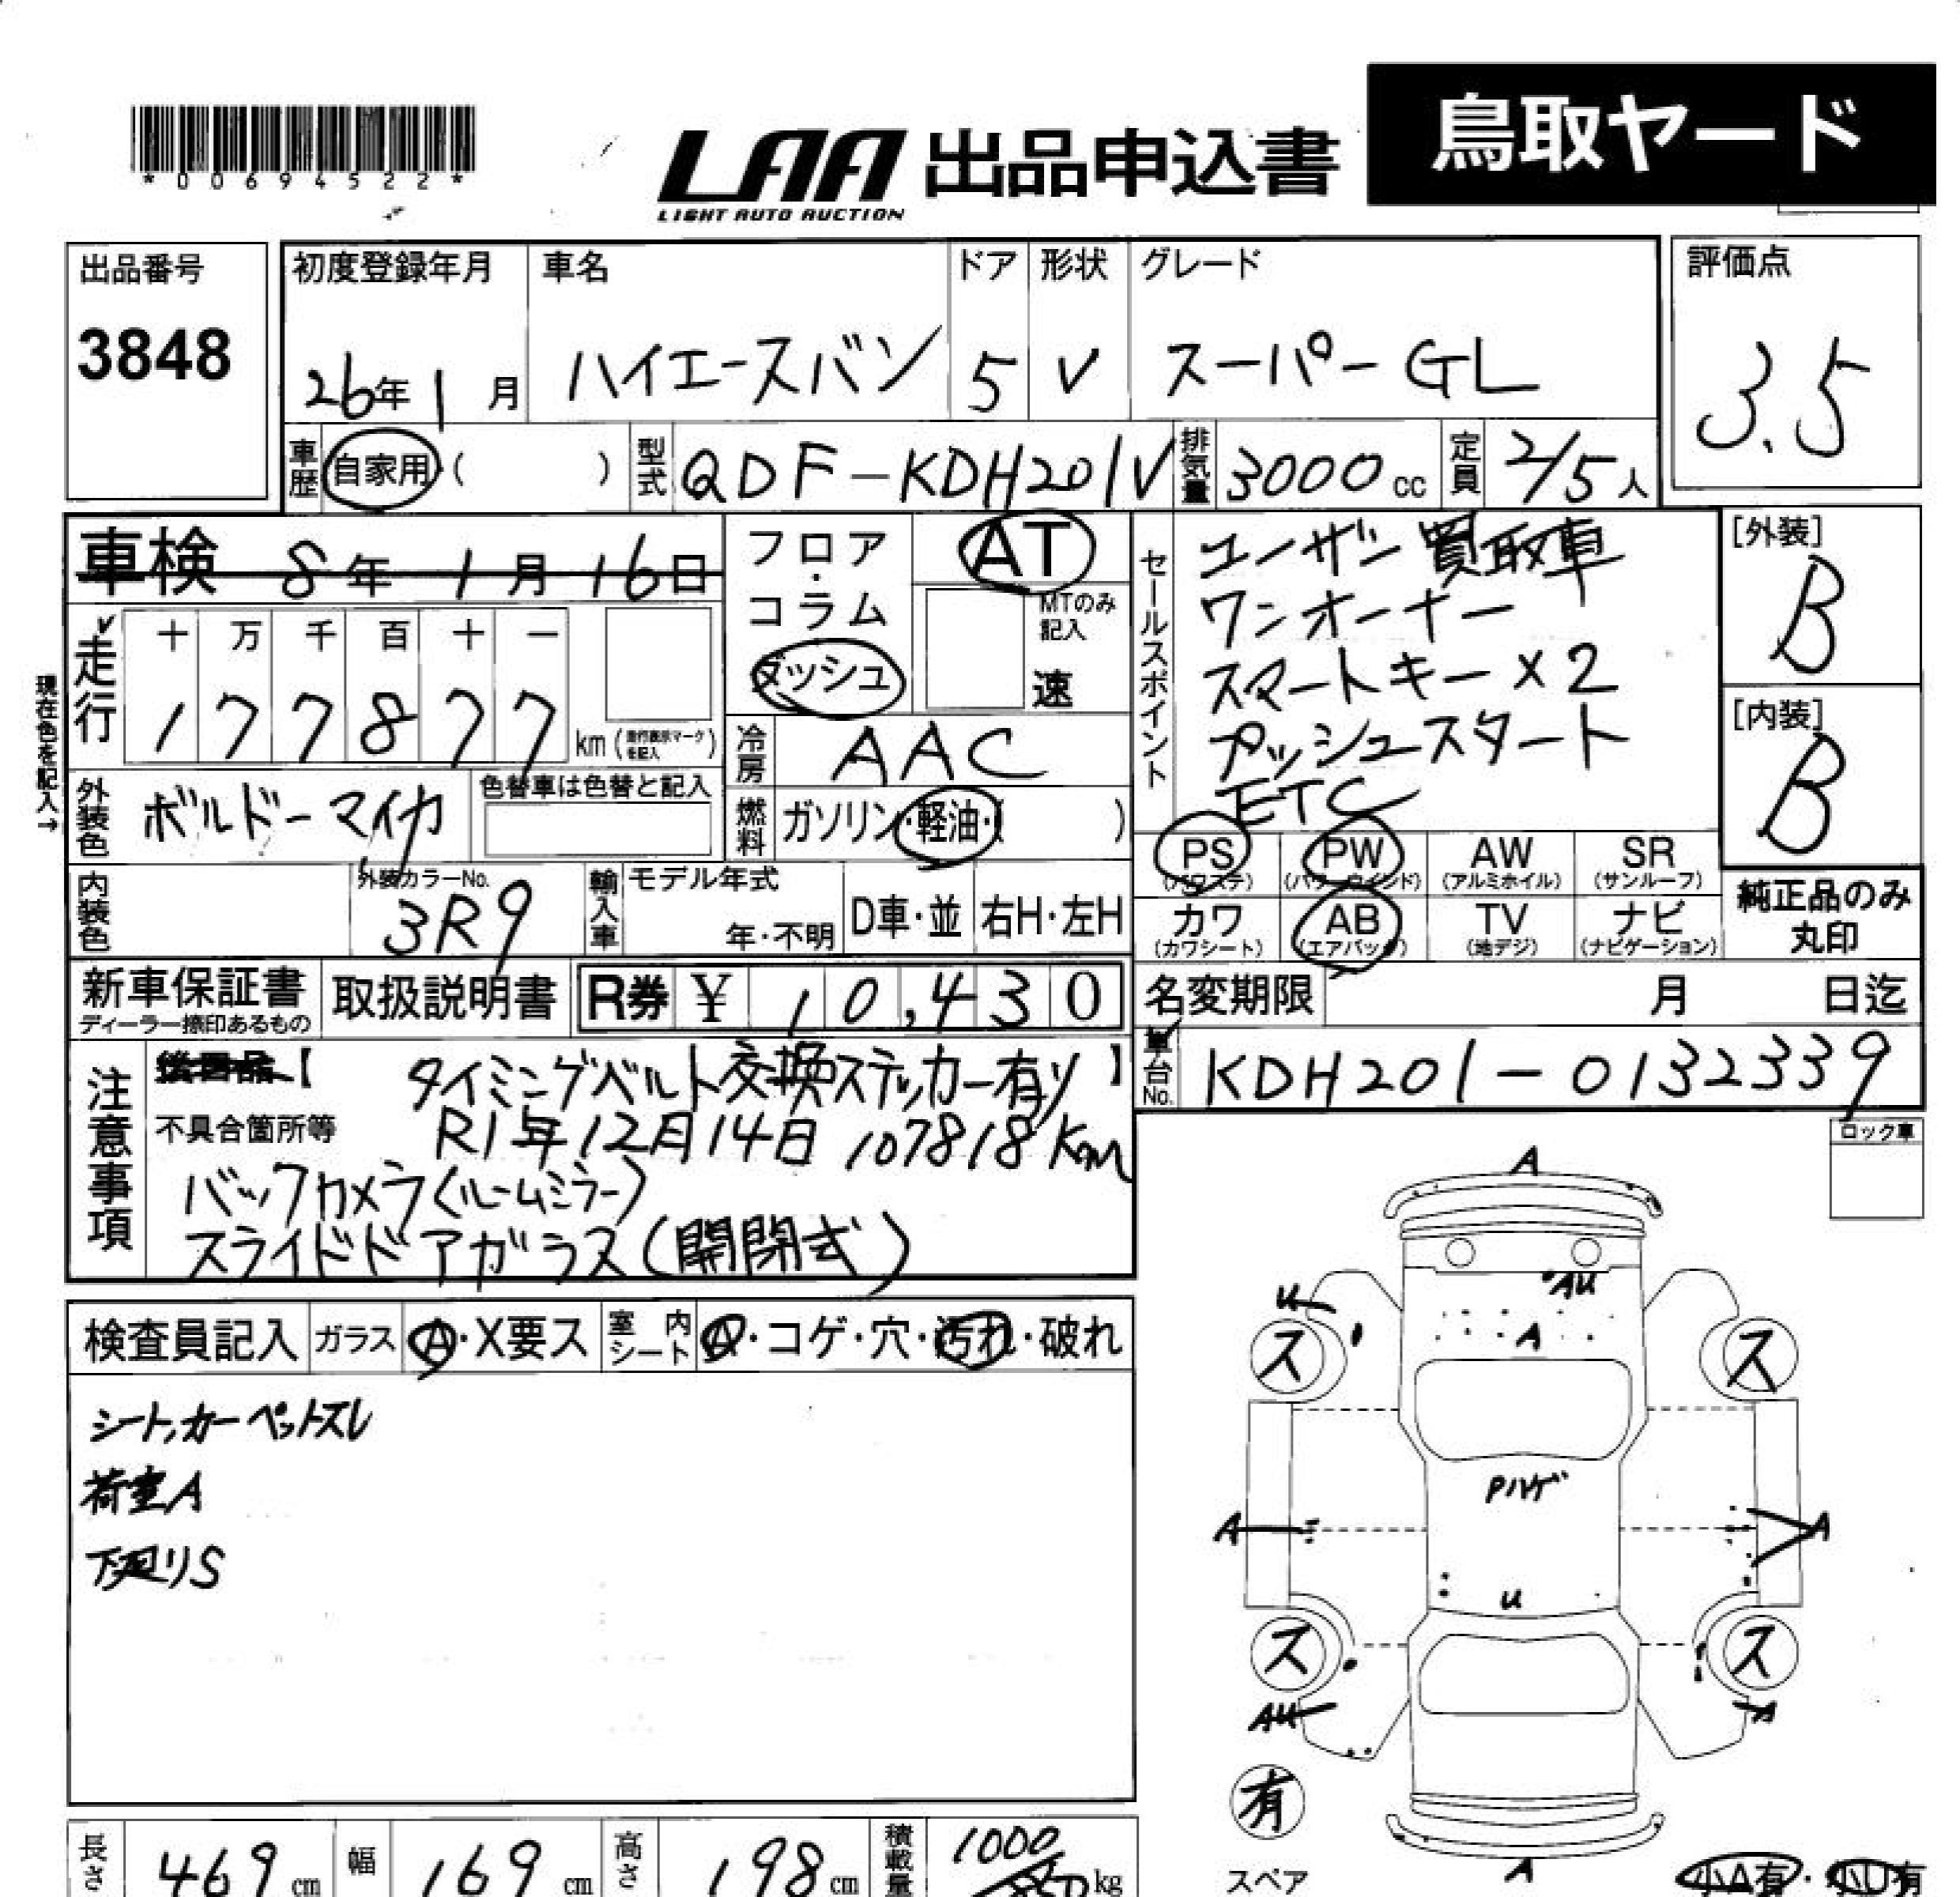 *00694522*
LAA 出品申込書 鳥取ヤード
LIGHT AUTO AUCTION
出品番号 初度登録年月 車名 ドア 形状 グレード 評価点
3848 26年1月 ハイエースバン 5 V スーパーGL 3.5
車歴 自家用( ) 型式 QDF-KDH201V 排気量 3000cc 定員 2/5人
車検 8年1月16日 フロア・コラム AT
ダッシュ
MTのみ記入
速
走行 十 万 千 百 十 一
1 7 7 8 7 7 km (走行表示マークを記入)
現在色を記入→
冷房 AAC
外装色 ボルドーマイカ 色替車は色替と記入
燃料 ガソリン・軽油・( )
内装色 外装カラーNo. 3R9
輸入車 モデル年式 年・不明 D車・並 右H・左H
セールスポイント
ユーザー買取車
ワンオーナー
スマートキー×2
プッシュスタート
ETC
[外装]
B
[内装]
B
PS (パワステ) PW (パワーウインド) AW (アルミホイル) SR (サンルーフ)
カワ (カワシート) AB (エアバック) TV (地デジ) ナビ (ナビゲーション)
純正品のみ丸印
新車保証書 取扱説明書 R券 ¥ 10,430
ディーラー捺印あるもの
名変期限 月 日迄
車台No. KDH201-0132339
注意事項
後日品【 タイミングベルト交換ステッカー有り 】
不具合箇所等 R1年12月14日 107818Km
バックカメラ(ルームミラー)
スライドドアガラス(開閉式)
ロック車
検査員記入 ガラス A・X要ス 室内シート A・コゲ・穴・汚れ・破れ
シート,カーペットスレ
荷室A
下廻りS
A
AU
U
A
ス ス
Pハゲ
A A
U
ス ス
AU A
有
スペア
A
小A有・小U有
長さ 469cm 幅 169cm 高さ 198cm 積載量 1000 kg